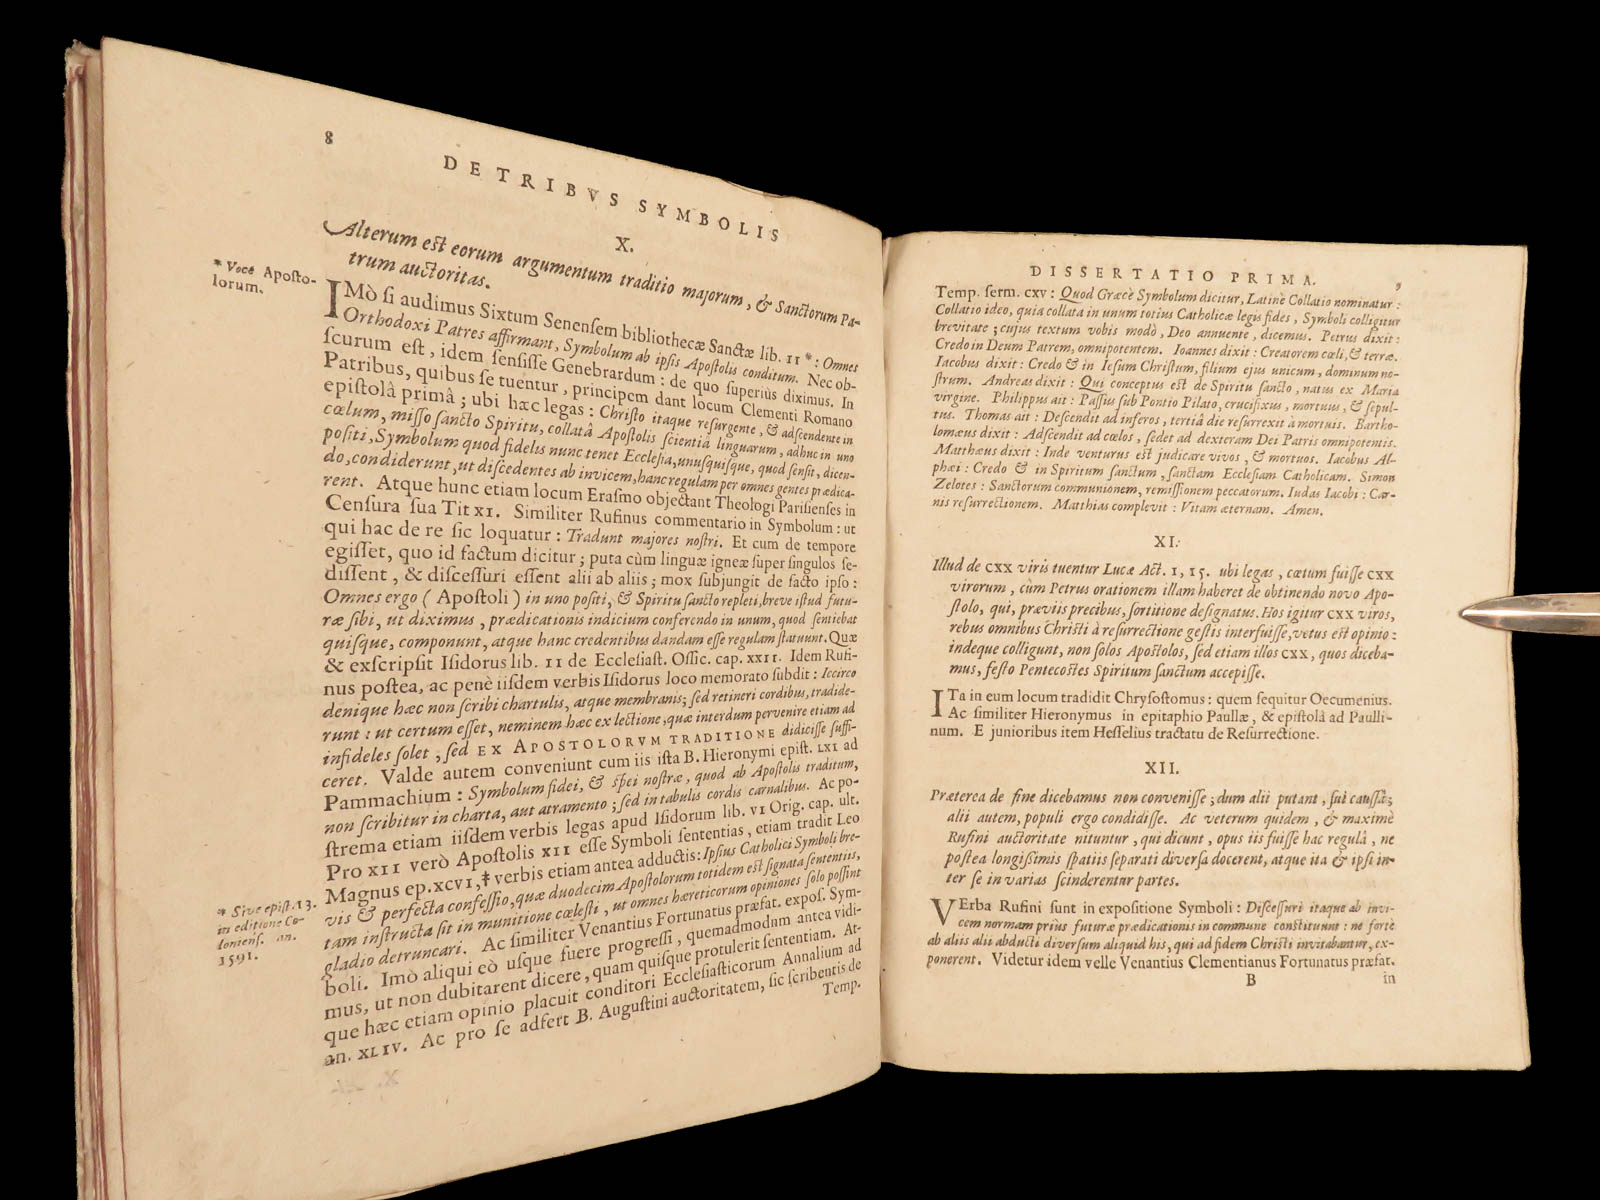 8
DE TRIBVS SYMBOLIS
X.
Alterum est eorum argumentum traditio majorum, & Sanctorum Pa-
trum auctoritas.
* Voce Aposto-
lorum.
IMò si audimus Sixtum Senensem bibliothecæ Sanctæ lib. II *: Omnes
Orthodoxi Patres affirmant, Symbolum ab ipsis Apostolis conditum. Nec ob-
scurum est, idem sensisse Genebrardum: de quo superiùs diximus. In
Patribus, quibus se tuentur, principem dant locum Clementi Romano
epistolâ primâ; ubi hæc legas: Christo itaque resurgente, & adscendente in
cœlum, misso sancto Spiritu, collatâ Apostolis scientiâ linguarum, adhuc in uno
positi, Symbolum quod fidelis nunc tenet Ecclesia, unusquisque, quod sensit, dicen-
do, condiderunt, ut discedentes ab invicem, hanc regulam per omnes gentes prædica-
rent. Atque hunc etiam locum Erasmo objectant Theologi Parisienses in
Censura sua Tit XI. Similiter Rufinus commentario in Symbolum: ut
qui hac de re sic loquatur: Tradunt majores nostri. Et cum de tempore
egisset, quo id factum dicitur; puta cùm linguæ igneæ super singulos se-
dissent, & discessuri essent alii ab aliis; mox subjungit de facto ipso:
Omnes ergo (Apostoli) in uno positi, & Spiritu sancto repleti, breve istud futu-
ræ sibi, ut diximus, prædicationis indicium conferendo in unum, quod sentiebat
quisque, componunt, atque hanc credentibus dandam esse regulam statuunt. Quæ
& exscripsit Isidorus lib. II de Ecclesiast. Offic. cap. XXII. Idem Rufi-
nus postea, ac penè iisdem verbis Isidorus loco memorato subdit: Iccirco
denique hæc non scribi chartulis, atque membranis; sed retineri cordibus, tradide-
runt: ut certum esset, neminem hæc ex lectione, quæ interdum pervenire etiam ad
infideles solet, sed EX APOSTOLORVM TRADITIONE didicisse suffi-
ceret. Valde autem conveniunt cum iis ista B. Hieronymi epist. LXI ad
Pammachium: Symbolum fidei, & spei nostræ, quod ab Apostolis traditum,
non scribitur in charta, aut atramento; sed in tabulis cordis carnalibus. Ac po-
strema etiam iisdem verbis legas apud Isidorum lib. VI Orig. cap. ult.
Pro XII verò Apostolis XII esse Symboli sententias, etiam tradit Leo
Magnus ep. XCVI, ‡ verbis etiam antea adductis: Ipsius Catholici Symboli bre-
vis & perfecta confessio, quæ duodecim Apostolorum totidem est signata sententiis,
tam instructa sit in munitione cœlesti, ut omnes hæreticorum opiniones solo possint
gladio detruncari. Ac similiter Venantius Fortunatus præfat. expos. Sym-
boli. Imò aliqui eò usque fuere progressi, quemadmodum antea vidi-
mus, ut non dubitarent dicere, quam quisque protulerit sententiam. At-
que hæc etiam opinio placuit conditori Ecclesiasticorum Annalium ad
an. XLIV. Ac pro se adfert B. Augustini auctoritatem, sic scribentis de
Temp.
* Sive epist. 13.
in editione Co-
loniens. an.
1591.
DISSERTATIO PRIMA.
9
Temp. serm. CXV: Quod Græcè Symbolum dicitur, Latinè Collatio nominatur:
Collatio ideo, quia collata in unum totius Catholicæ legis fides, Symboli colligitur
brevitate; cujus textum vobis modò, Deo annuente, dicemus. Petrus dixit:
Credo in Deum Patrem, omnipotentem. Ioannes dixit: Creatorem cœli, & terræ.
Iacobus dixit: Credo & in Iesum Christum, filium ejus unicum, dominum no-
strum. Andreas dixit: Qui conceptus est de Spiritu sancto, natus ex Maria
virgine. Philippus ait: Passus sub Pontio Pilato, crucifixus, mortuus, & sepul-
tus. Thomas ait: Descendit ad inferos, tertiâ die resurrexit à mortuis. Bartho-
lomæus dixit: Adscendit ad cœlos, sedet ad dexteram Dei Patris omnipotentis.
Matthæus dixit: Inde venturus est judicare vivos, & mortuos. Iacobus Al-
phæi: Credo & in Spiritum sanctum, sanctam Ecclesiam Catholicam. Simon
Zelotes: Sanctorum communionem, remissionem peccatorum. Iudas Iacobi: Car-
nis resurrectionem. Matthias complevit: Vitam æternam. Amen.
XI.
Illud de CXX viris tuentur Lucæ Act. 1, 15. ubi legas, cœtum fuisse CXX
virorum, cùm Petrus orationem illam haberet de obtinendo novo Apo-
stolo, qui, præviis precibus, sortitione designatus. Hos igitur CXX viros,
rebus omnibus Christi à resurrectione gestis interfuisse, vetus est opinio:
indeque colligunt, non solos Apostolos, sed etiam illos CXX, quos diceba-
mus, festo Pentecostes Spiritum sanctum accepisse.
ITa in eum locum tradidit Chrysostomus: quem sequitur Oecumenius.
Ac similiter Hieronymus in epitaphio Paullæ, & epistolâ ad Paulli-
num. E junioribus item Hesselius tractatu de Resurrectione.
XII.
Præterea de fine dicebamus non convenisse; dum alii putant, sui caussâ;
alii autem, populi ergo condidisse. Ac veterum quidem, & maximè
Rufini auctoritate nituntur, qui dicunt, opus iis fuisse hac regulâ, ne
postea longissimis spatiis separati diversa docerent, atque ita & ipsi in-
ter se in varias scinderentur partes.
VErba Rufini sunt in expositione Symboli: Discessuri itaque ab invi-
cem normam priùs futuræ prædicationis in commune constituunt: ne fortè
ab aliis alii abducti diversum aliquid his, qui ad fidem Christi invitabantur, ex-
ponerent. Videtur idem velle Venantius Clementianus Fortunatus præfat.
B
in